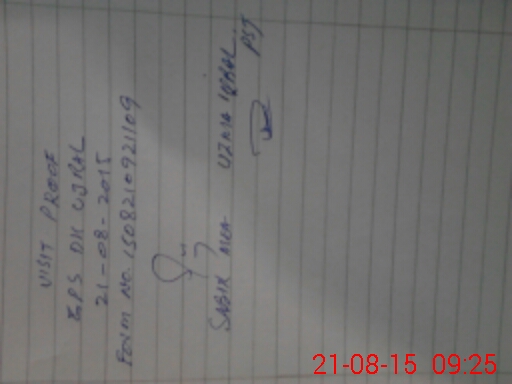 VISIT PROOF
GPS DK UJRAL
21-08-2015
Form No. 1508210921109
SABIR
UZMA IQBAL
PST
21-08-15 09:25